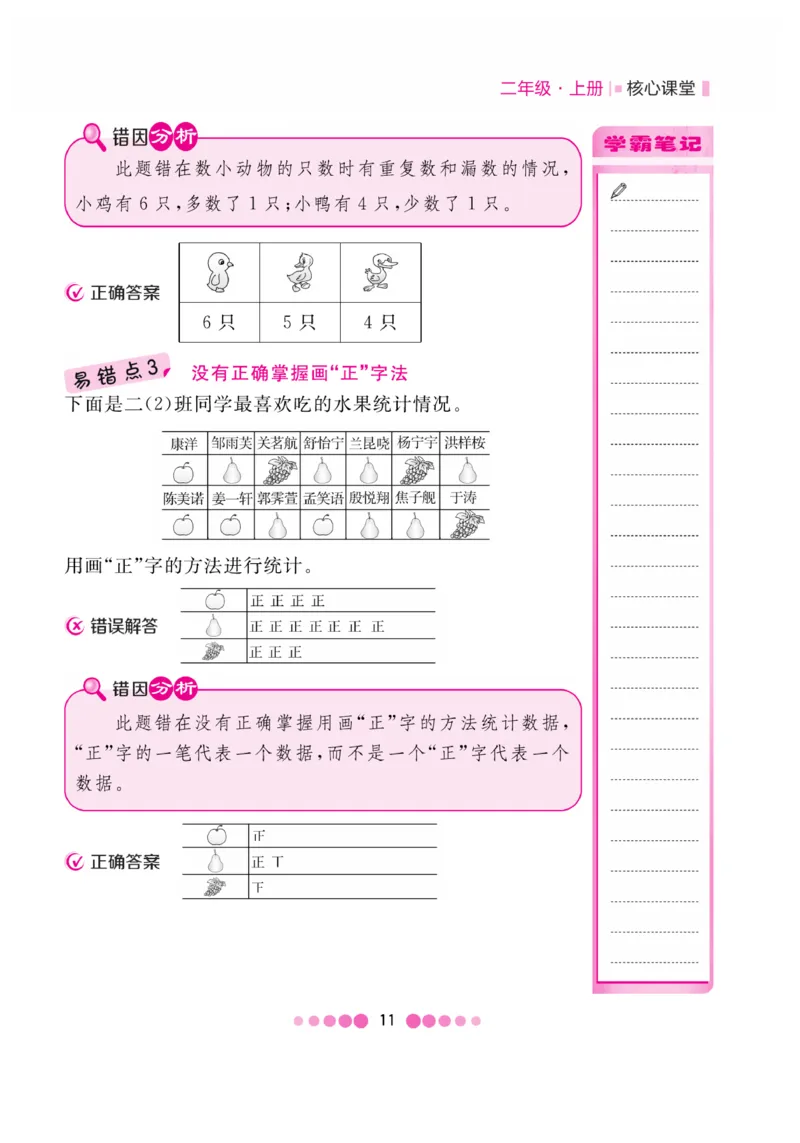 二年级·上册 核心课堂
错因分析
此题错在数小动物的只数时有重复数和漏数的情况，
小鸡有 6 只，多数了 1 只；小鸭有 4 只，少数了 1 只。
学霸笔记
正确答案
6 只 5 只 4 只
易错点3 没有正确掌握画“正”字法
下面是二(2)班同学最喜欢吃的水果统计情况。
康洋 邹雨芙 关茗航 舒怡宁 兰昆晓 杨宁宇 洪样桉
陈美诺 姜一轩 郭霁萱 孟笑语 殷悦翔 焦子舰 于涛
用画“正”字的方法进行统计。
错误解答
正 正 正 正
正 正 正 正 正 正 正
正 正 正
错因分析
此题错在没有正确掌握用画“正”字的方法统计数据，
“正”字的一笔代表一个数据，而不是一个“正”字代表一个
数据。
正确答案
正
正 丅
下
11